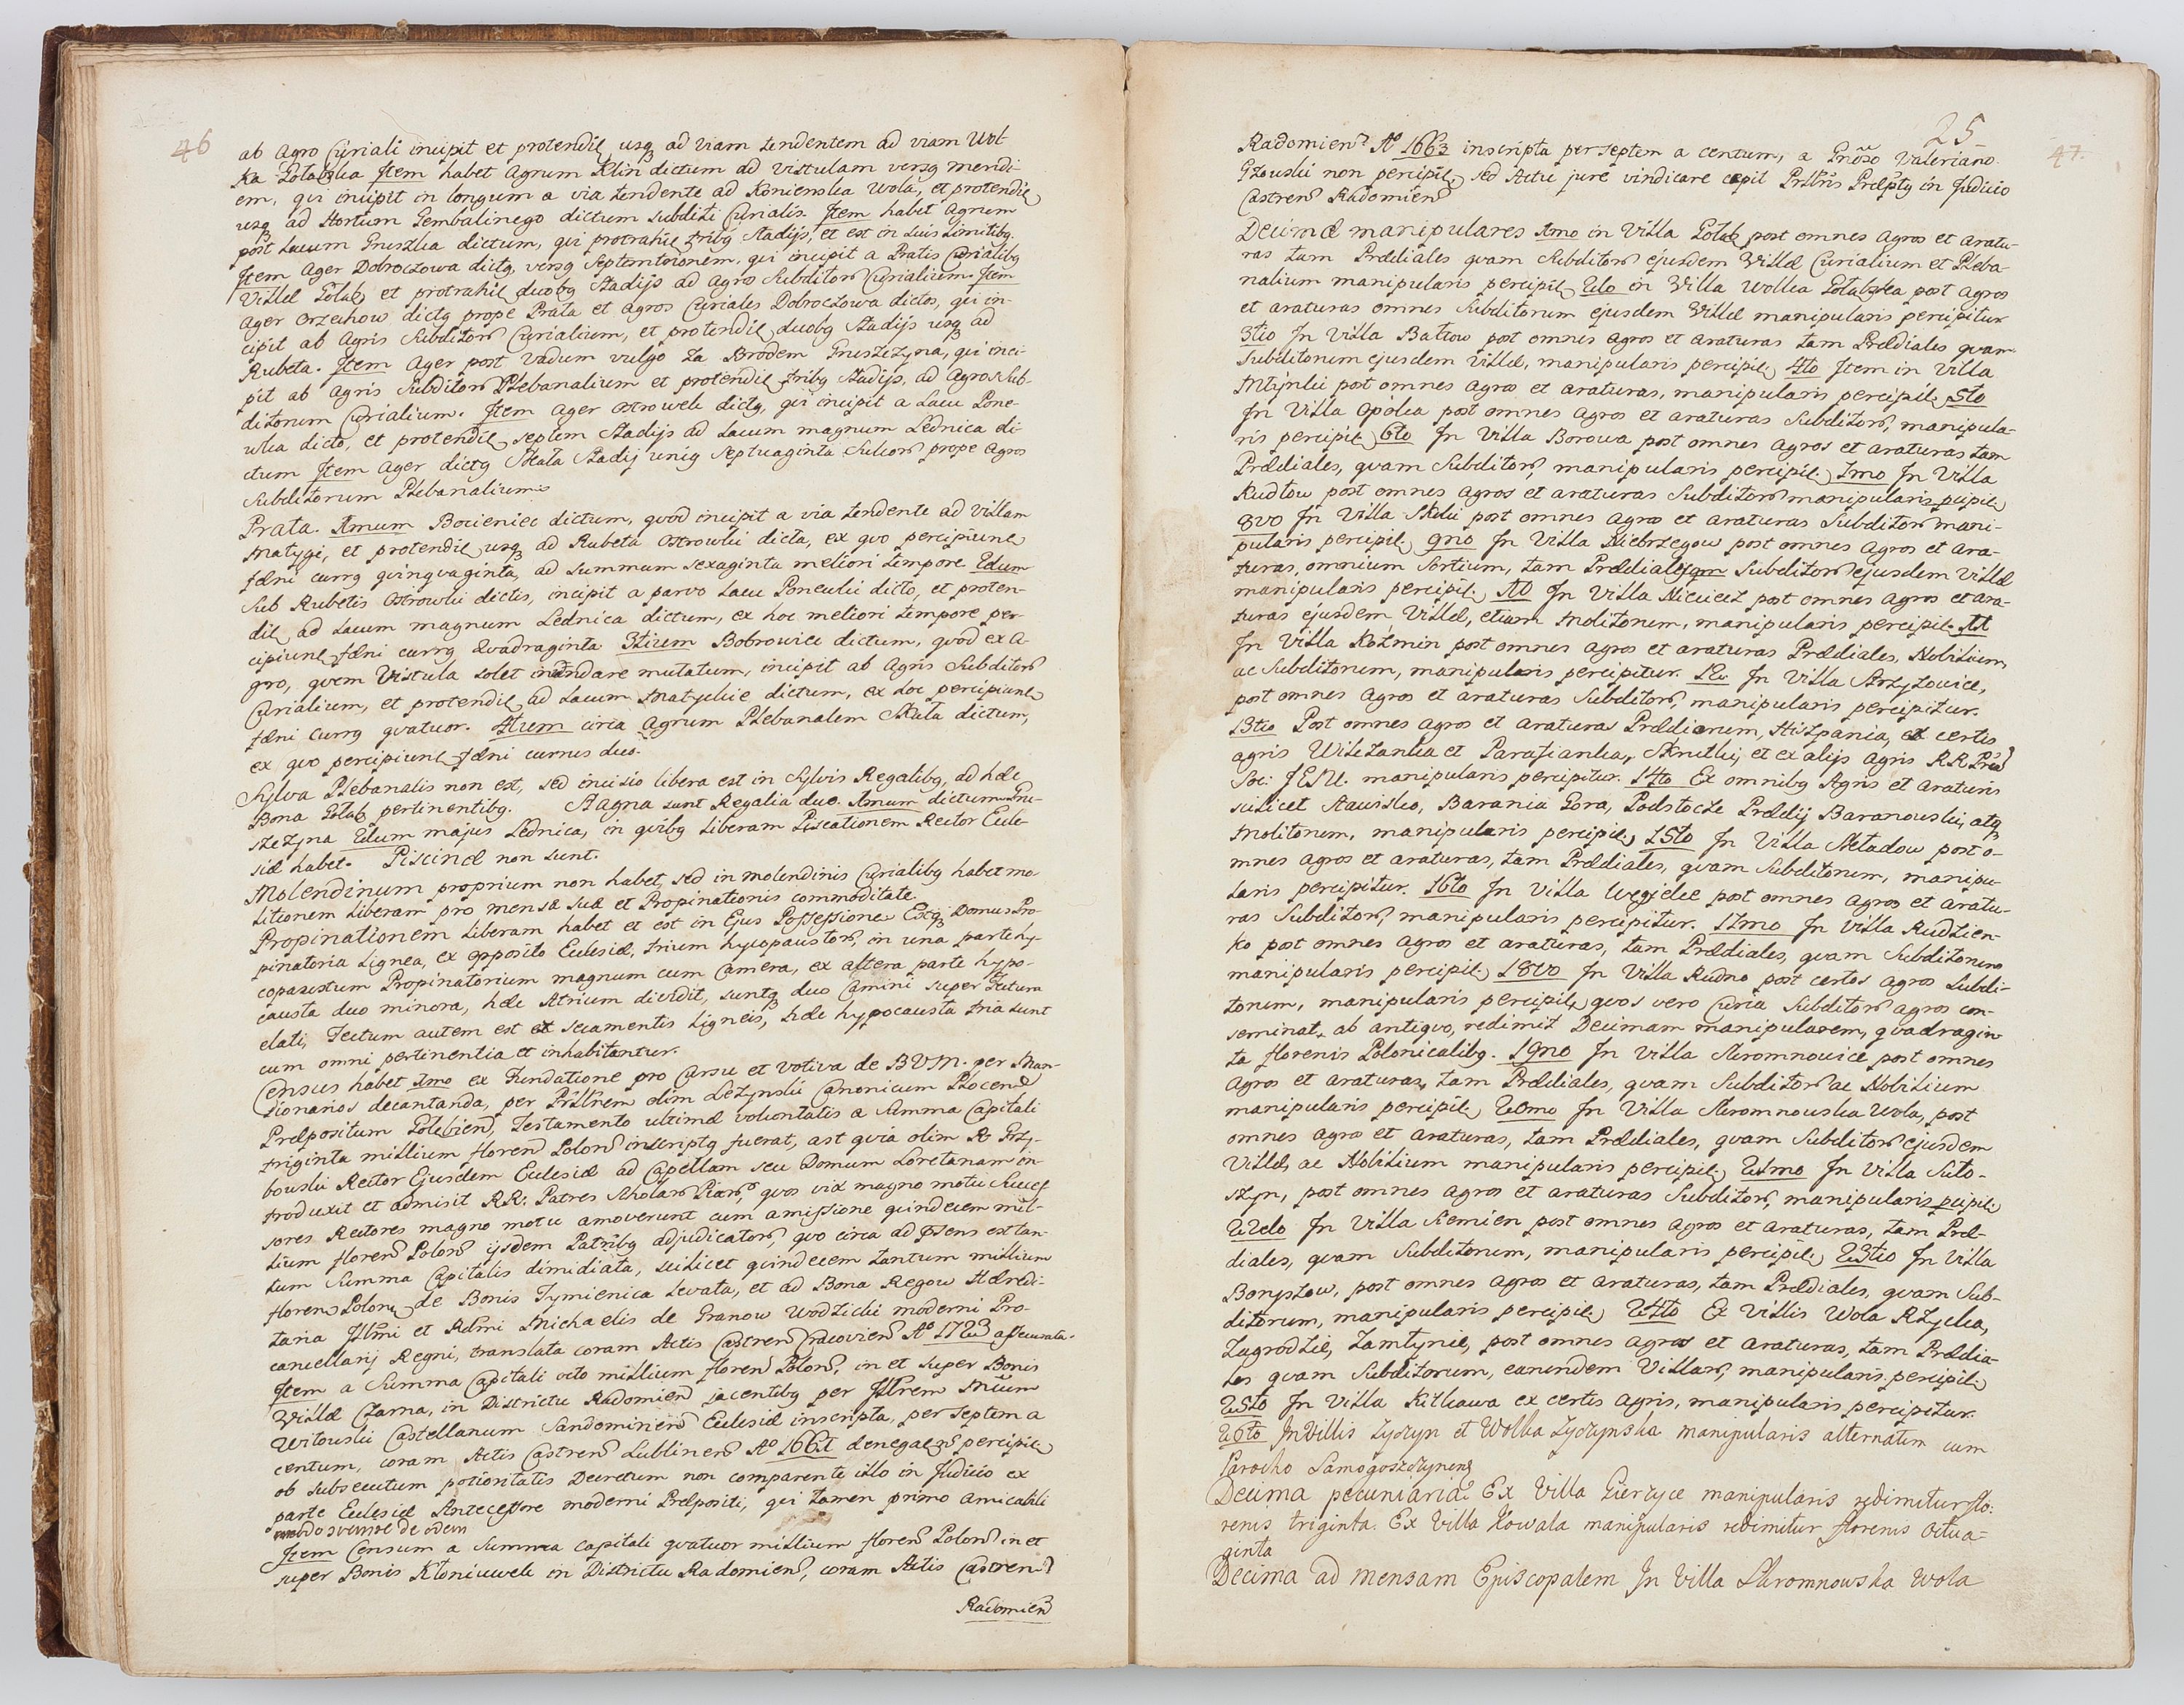 46
ab Agro Curiali incipit et protendit usq ad viam tendentem ad viam Wol-
ka Gołąbska Item habet Agrum Klin dictum ad Vistulam versq meridi-
em, qvi incipit in longum a via tendente ad Konienska Wola, et protendit
usq ad Hortum Gembalinego dictum Subditi Curialis. Item habet Agrum
post Lacum Gruszka dictum, qvi protrahit tribq Stadijs, et est in Suis Limitibq.
Item Ager Dobroczowa dictq, versq Septemtrionem, qvi incipit a Pratis Curialibq
Villæ Gołąb, et protrahit duobq Stadijs ad Agros Subditor Curialium. Item
Ager Orzechow dictq prope Prata et Agros Curiales Dobroczowa dictos, qvi in-
cipit ab Agris Subditor Curialium, et protendit duobq Stadijs usq ad
Rubeta. Item Ager post Vadum vulgo za Brodem Gruszczyna, qvi inci-
pit ab Agris Subditor Plebanalium et protendit tribq Stadijs, ad Agros Sub-
ditorum Curialium. Item Ager Ostrowek dictq, qvi incipit a Lacu Pone-
wka dicto, et protendit septem Stadijs ad Lacum magnum Lednica di-
ctum Item Ager dictq Skała Stadij uniq Septuaginta Sulcor prope Agros
Subditorum Plebanalium
Prata. 1mum Bocieniec dictum, qvod incipit a via tendente ad Villam
Matygi, et protendit usq ad Rubeta Ostrowki dicta, ex qvo percipiunt
fæni currq qvinqvaginta, ad summum sexaginta meliori tempore 2dum
Sub Rubetis Ostrowki dictis, incipit a parvo Lacu Ponewki dicto, et proten-
dit ad Lacum magnum Lednica dictum, ex hoc meliori tempore per-
cipiunt fæni currq Qvadraginta 3tium Bobrowice dictum, qvod ex A-
gro, qvem Vistula solet inundare mutatum, incipit ab Agris Subditor
Curialium, et protendit ad Lacum Matyckie dictum, ex hoc percipiunt
fæni currq qvatuor. 4tum circa Agrum Plebanalem Skała dictum,
ex qvo percipiunt fæni currus duo.
Sylva Plebanalis non est, sed incisio libera est in Sylvis Regalibq, ad hæc
Bona Gołąb pertinentibq. Stagna sunt Regalia duo. 1mum dictum Gru-
szczyna 2dum majus Lednica, in qvibq Liberam Piscationem Rector Eccle-
siæ habet. Piscinæ non sunt.
Molendinum proprium non habet, sed in molendinis Curialibq habet mo
litionem Liberam pro mensa sua et Propinationis commoditate.
Propinationem Liberam habet et est in Ejus Possessione Estq Domus Pro-
pinatoria Lignea, ex opposito Ecclesiæ, trium hypocaustor, in una parte hy-
pocaustum Propinatorium magnum cum Camera, ex altera parte hypo-
causta duo minora, hæc Atrium dividit, suntq duo Camini super Tectum
elati, Tectum autem est ex secamentis Ligneis, hæc hypocausta tria sunt
cum omni pertinentia et inhabitantur.
Census habet 1mo ex Fundatione pro Cursu et Votiva de BVM. per Man-
sionarios decantanda, per Prllrem olim Leżynski Canonicum Plocens
Præpositum Golebiens, Testamento ultimæ voluntatis a Summa Capitali
triginta millium floren Polon inscriptq fuerat, ast qvia olim R Grzy-
bowski Rector Ejusdem Ecclesiæ ad Capellam seu Domum Loretanam in-
troduxit et admisit RR: Patres Scholar Piar, qvos vix magno motu Succes
sores Rectores magno motu amoverunt cum amissione qvindecim mil-
lium floren Polon ijsdem Patribq adjudicator, qvo circa ad psens est tan-
tum Summa Capitalis dimidiata, scilicet qvindecim tantum millium
floren Polon, de Bonis Tymienica Levata, et ad Bona Regow Hæredi-
taria Jllmi et Rdmi Michaelis de Granow Wodzicki moderni Pro-
cancellarij Regni, translata coram Actis Castren Cracovien Aº 1723 assecurata.
Item a Summa Capitali octo millium floren Polon, in et super Bonis
Villæ Czarna, in Districtu Radomien jacentibq per Jllrem Mcum
Witowski Castellanum Sandomirien Ecclesiæ inscripta, per septem a
centum, coram Actis Castren Lublinen Aº 1661 denegat percipit
ob subsecutum potioritatis Decretum non comparente illo in Judicio ex
parte Ecclesiæ Antecessore moderni Præpositi, qvi tamen primo amicabili
modo svemse de odem
Item Censum a Summa capitali qvatuor millium floren Polon in et
super Bonis Kłoniuwek in Districtu Radomien, coram Actis Castren
Radomien
25
47.
Radomien Aº 1663 inscripta per septem a centum, a Gnoso Valeriano
Gzowski non percipit, Ad Actu jure vindicare cæpit Prllris Præpstq in Judicio
Castren Radomien
Decimæ manipulares 1mo in Villa Gołąb post omnes Agros et aratu-
ras tam Prædiales qvam Subditor ejusdem Villæ Curialium et Pleba-
nalium manipularis percipit, 2do in Villa Wolka Gołąbska post Agros
et araturas omnes Subditorum ejusdem Villæ manipularis percipitur
3tio In Villa Bałtow post omnes Agros et araturas tam Prædiales qvam
Subditorum ejusdem Villæ, manipularis percipit, 4to Item in Villa
Młynki post omnes Agros et araturas, manipularis percipit, 5to
In Villa Opolka post omnes Agros et araturas Subditor, manipula-
ris percipit, 6to In Villa Borowa post omnes Agros et araturas tam
Prædiales, qvam Subditor, manipularis percipit, 7mo In Villa
Rudłow post omnes Agros et araturas Subditor manipularis pcipit,
8vo In Villa Skoki post omnes Agros et araturas Subditor mani-
pularis percipit, 9no In Villa Niebrzegow post omnes Agros et ara-
turas, omnium Sortium, tam Prædiales qm Subditor ejusdem Villæ
manipularis percipit, 10 In Villa Nieciecz post omnes Agros et ara-
turas ejusdem Villæ, etiam Molitorum, manipularis percipit. 11
In Villa Kozmin post omnes Agros et araturas Prædiales, Nobilium,
ac Subditorum, manipularis percipitur. 12. In Villa Strzyzowice,
post omnes Agros et araturas Subditor, manipularis percipitur.
13tio Post omnes Agros et araturas Prædiorum, Hiszpania, ex certis
agris Wilczanka et Parafianka, Skrutki, et ex alijs Agris RR Prum
Soc: JESU. manipularis percipitur. 14to Ex omnibq Agris et araturis
scilicet Stawisko, Barania Gora, Podstocze Prædij Baranowski, atq
Molitorum, manipularis percipit, 15to In Villa Składow post o-
mnes Agros et araturas, tam Prædiales, qvam Subditorum, manipu-
laris percipitur. 16to In Villa Węgielce post omnes Agros et aratu-
ras Subditor, manipularis percipitur. 17mo In Villa Rudzien-
ko post omnes Agros et araturas, tam Prædiales, qvam Subditorum
manipularis percipit, 18vo In Villa Rudno post certos Agros Subdi-
torum, manipularis percipit, qvos vero Curia Subditor Agros con-
seminat, ab antiqvo, redimit Decimam manipularem, qvadragin-
ta florenis Polonicalibq. 19no In Villa Skromnowice post omnes
Agros et araturas, tam Prædiales, qvam Subditor ac Nobilium
manipularis percipit, 20mo In Villa Skromnowska Wola, post
omnes Agros et araturas, tam Prædiales, qvam Subditor ejusdem
Villæ, ac Nobilium manipularis percipit, 21mo In Villa Suto-
szyn, post omnes Agros et araturas Subditor, manipularis pcipit,
22do In Villa Siemien post omnes Agros et araturas, tam Præ-
diales, qvam Subditorum, manipularis percipit, 23tio In Villa
Borysow, post omnes Agros et araturas, tam Prædiales, qvam Sub-
ditorum, manipularis percipit, 24to Ex Villis Wola Rzycka,
Zagrodzie, Zamłynie, post omnes Agros et araturas, tam Prædia-
les qvam Subditorum, earundem Villar, manipularis percipit,
25to In Villa Kitkawa ex certis Agris, manipularis percipitur.
26to In Villis Zyczyn et Wolka Zyczynska manipularis alternatim cum
Parocho Samogoszczynens
Decima pecuniaria. Ex Villa Gierzyce manipularis redimitur flo:
renis triginta. Ex Villa Kowala manipularis redimitur florenis Octua-
ginta
Decima ad mensam Episcopalem In Villa Skromnowska Wola